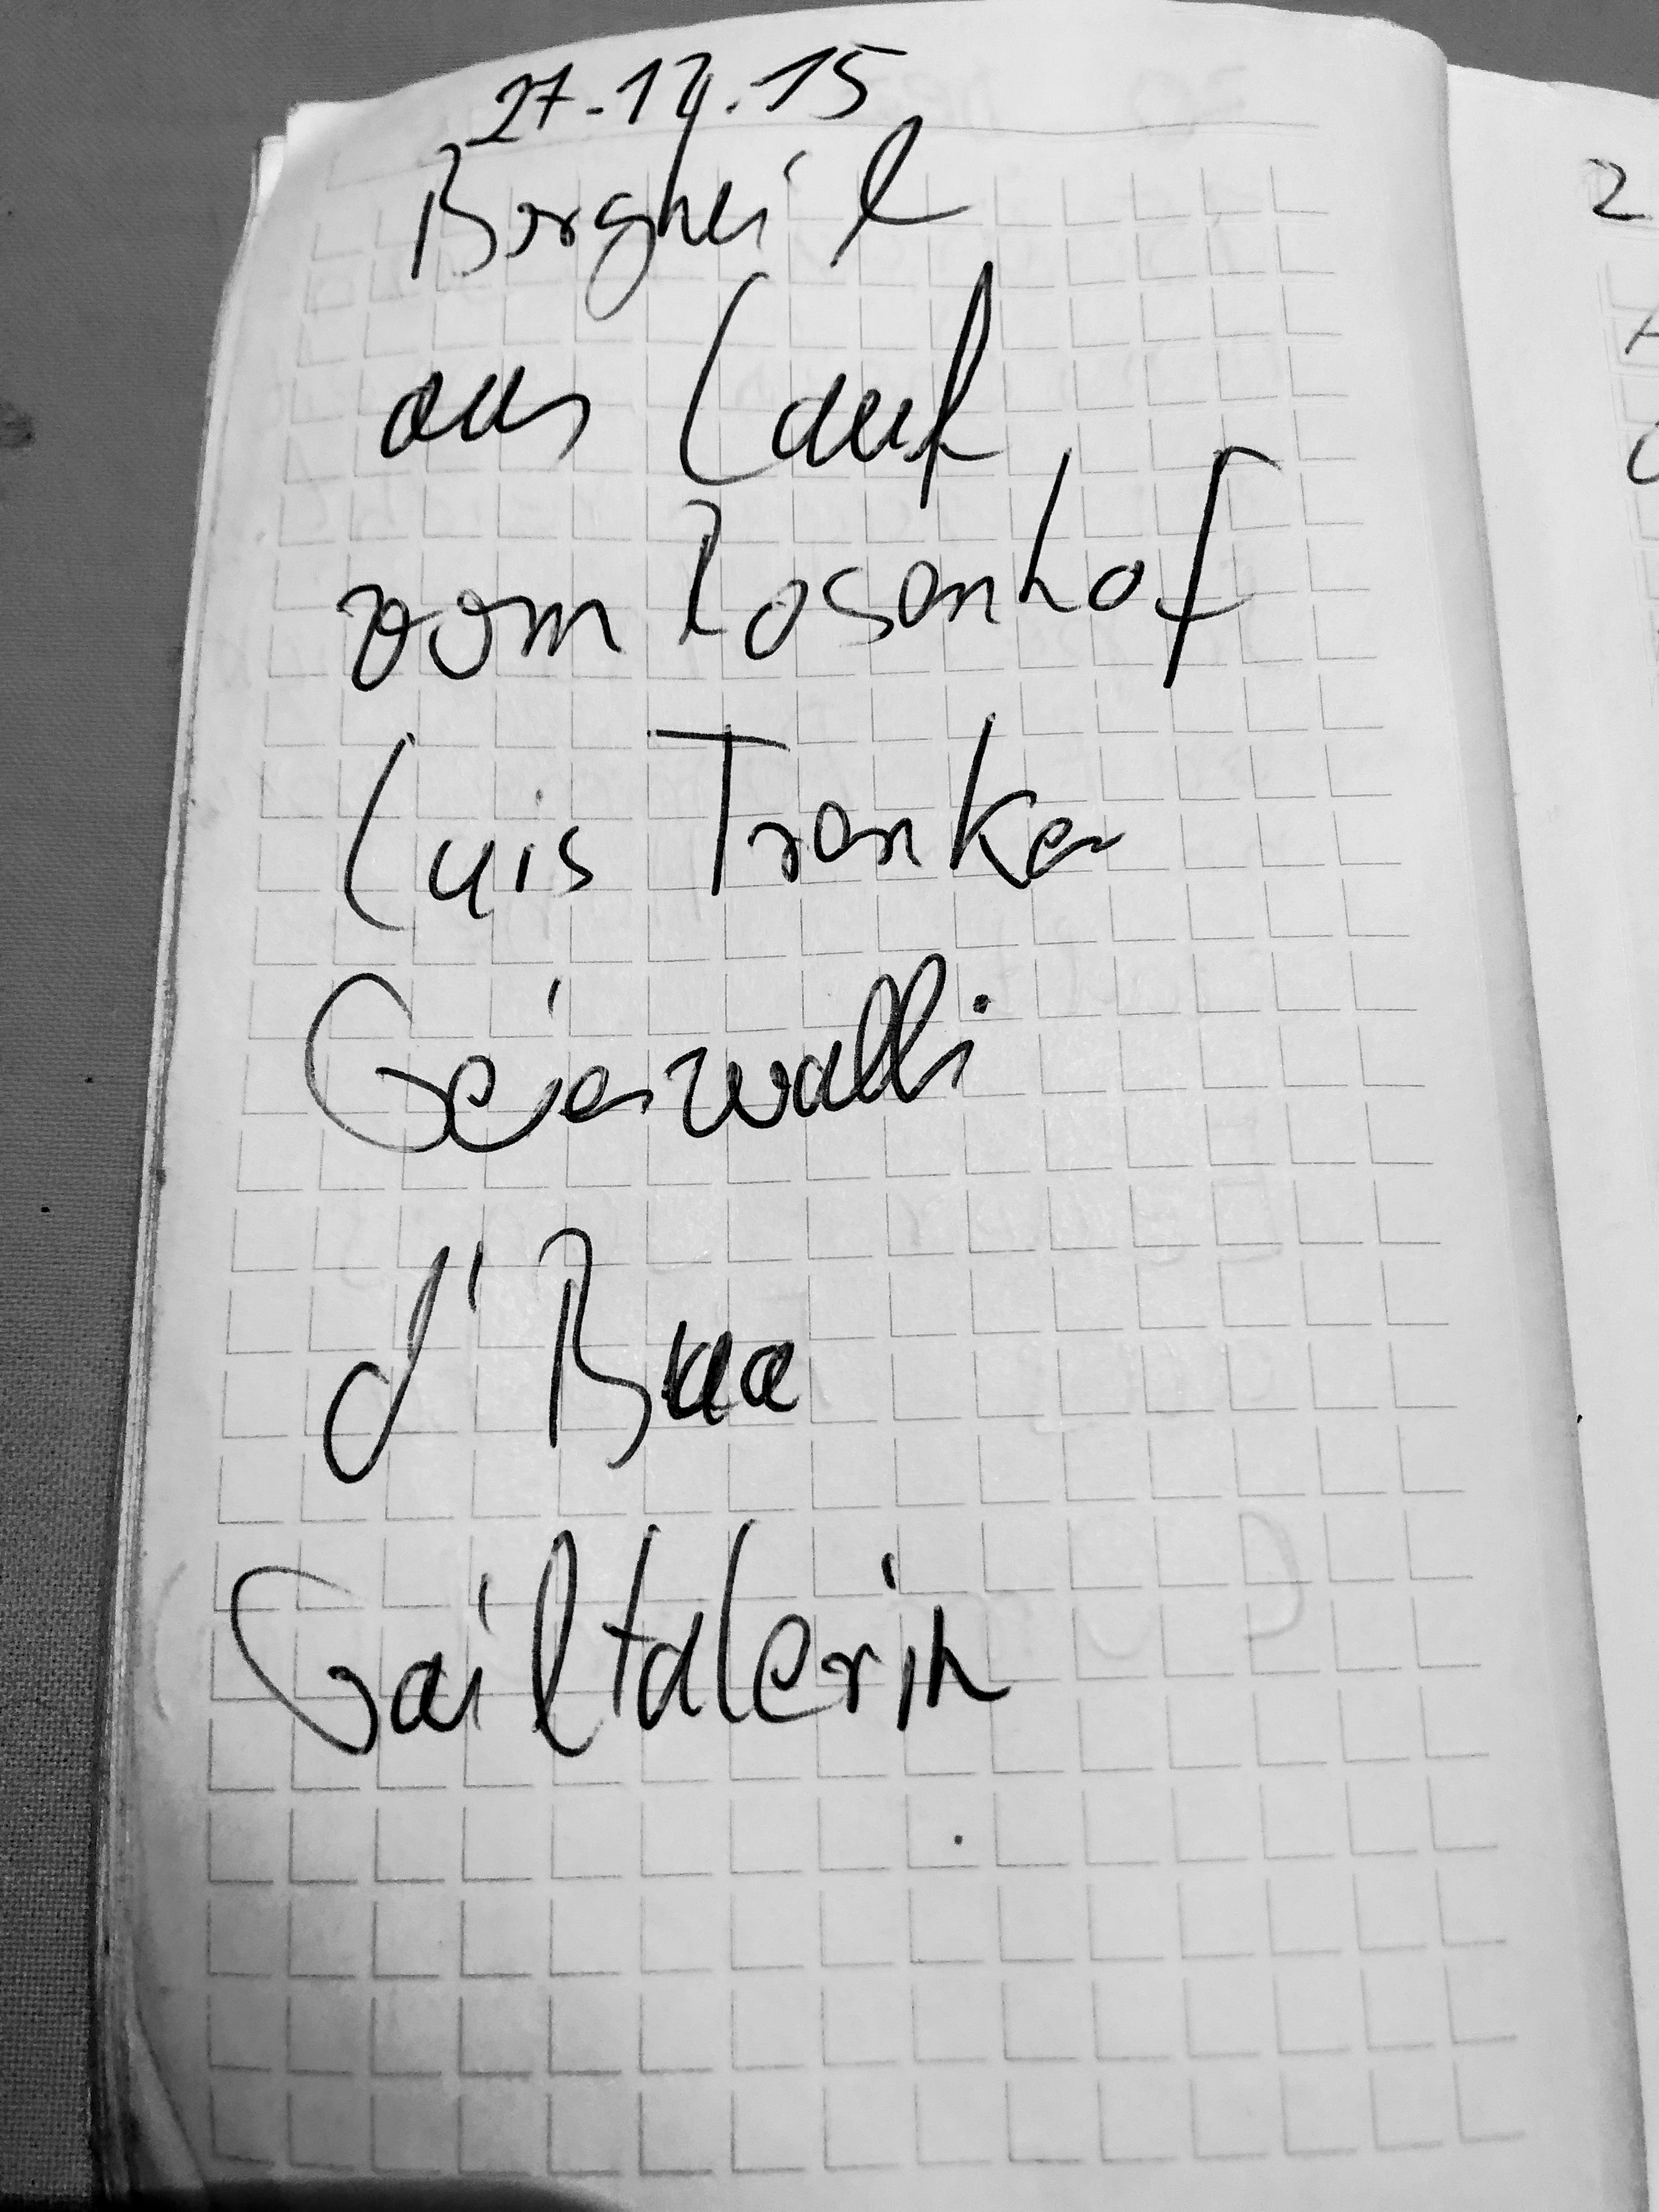 27.12.15
Bergheil
aus Lauf
vom Rosenhof
Luis Trenker
Geierwalli
d' Bua
Gailtalerin
2